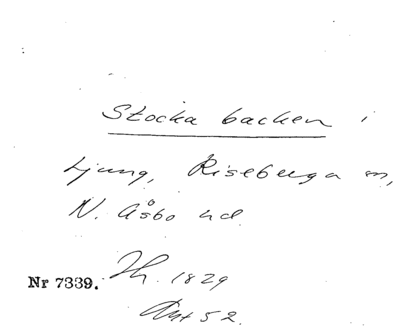 Stocka backen i
Ljung, Riseberga sn,
N. Åsbo hd
Nr 7339. Th. 1829
Ant 52.